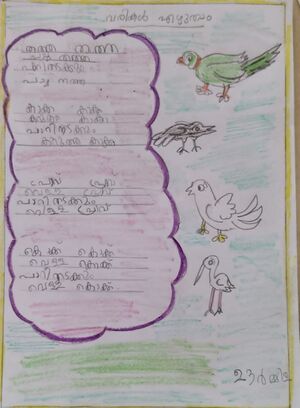 വരികൾ എഴുതാം
തത്ത തത്ത
പച്ച തത്ത
പാറിനടക്കും
പച്ച തത്ത
കാക്ക കാക്ക
കറുത്ത കാക്ക
പാറിനടക്കും
കറുത്ത കാക്ക
പ്രാവ് പ്രാവ്
വെള്ള പ്രാവ്
പാറിനടക്കും
വെള്ള പ്രാവ്
കൊക്ക് കൊക്ക്
വെള്ള കൊക്ക്
പാറിനടക്കും
വെള്ള കൊക്ക്